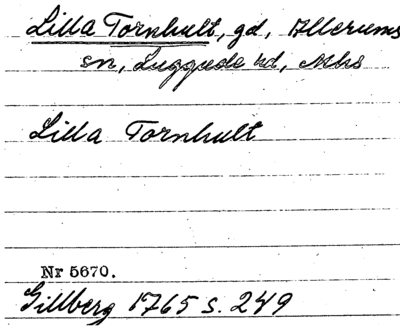 Lilla Tornhult, gd, Allerums
sn, Luggude hd, Mhs
Lilla Tornhult
Nr 5670.
Gillberg 1765 s. 249